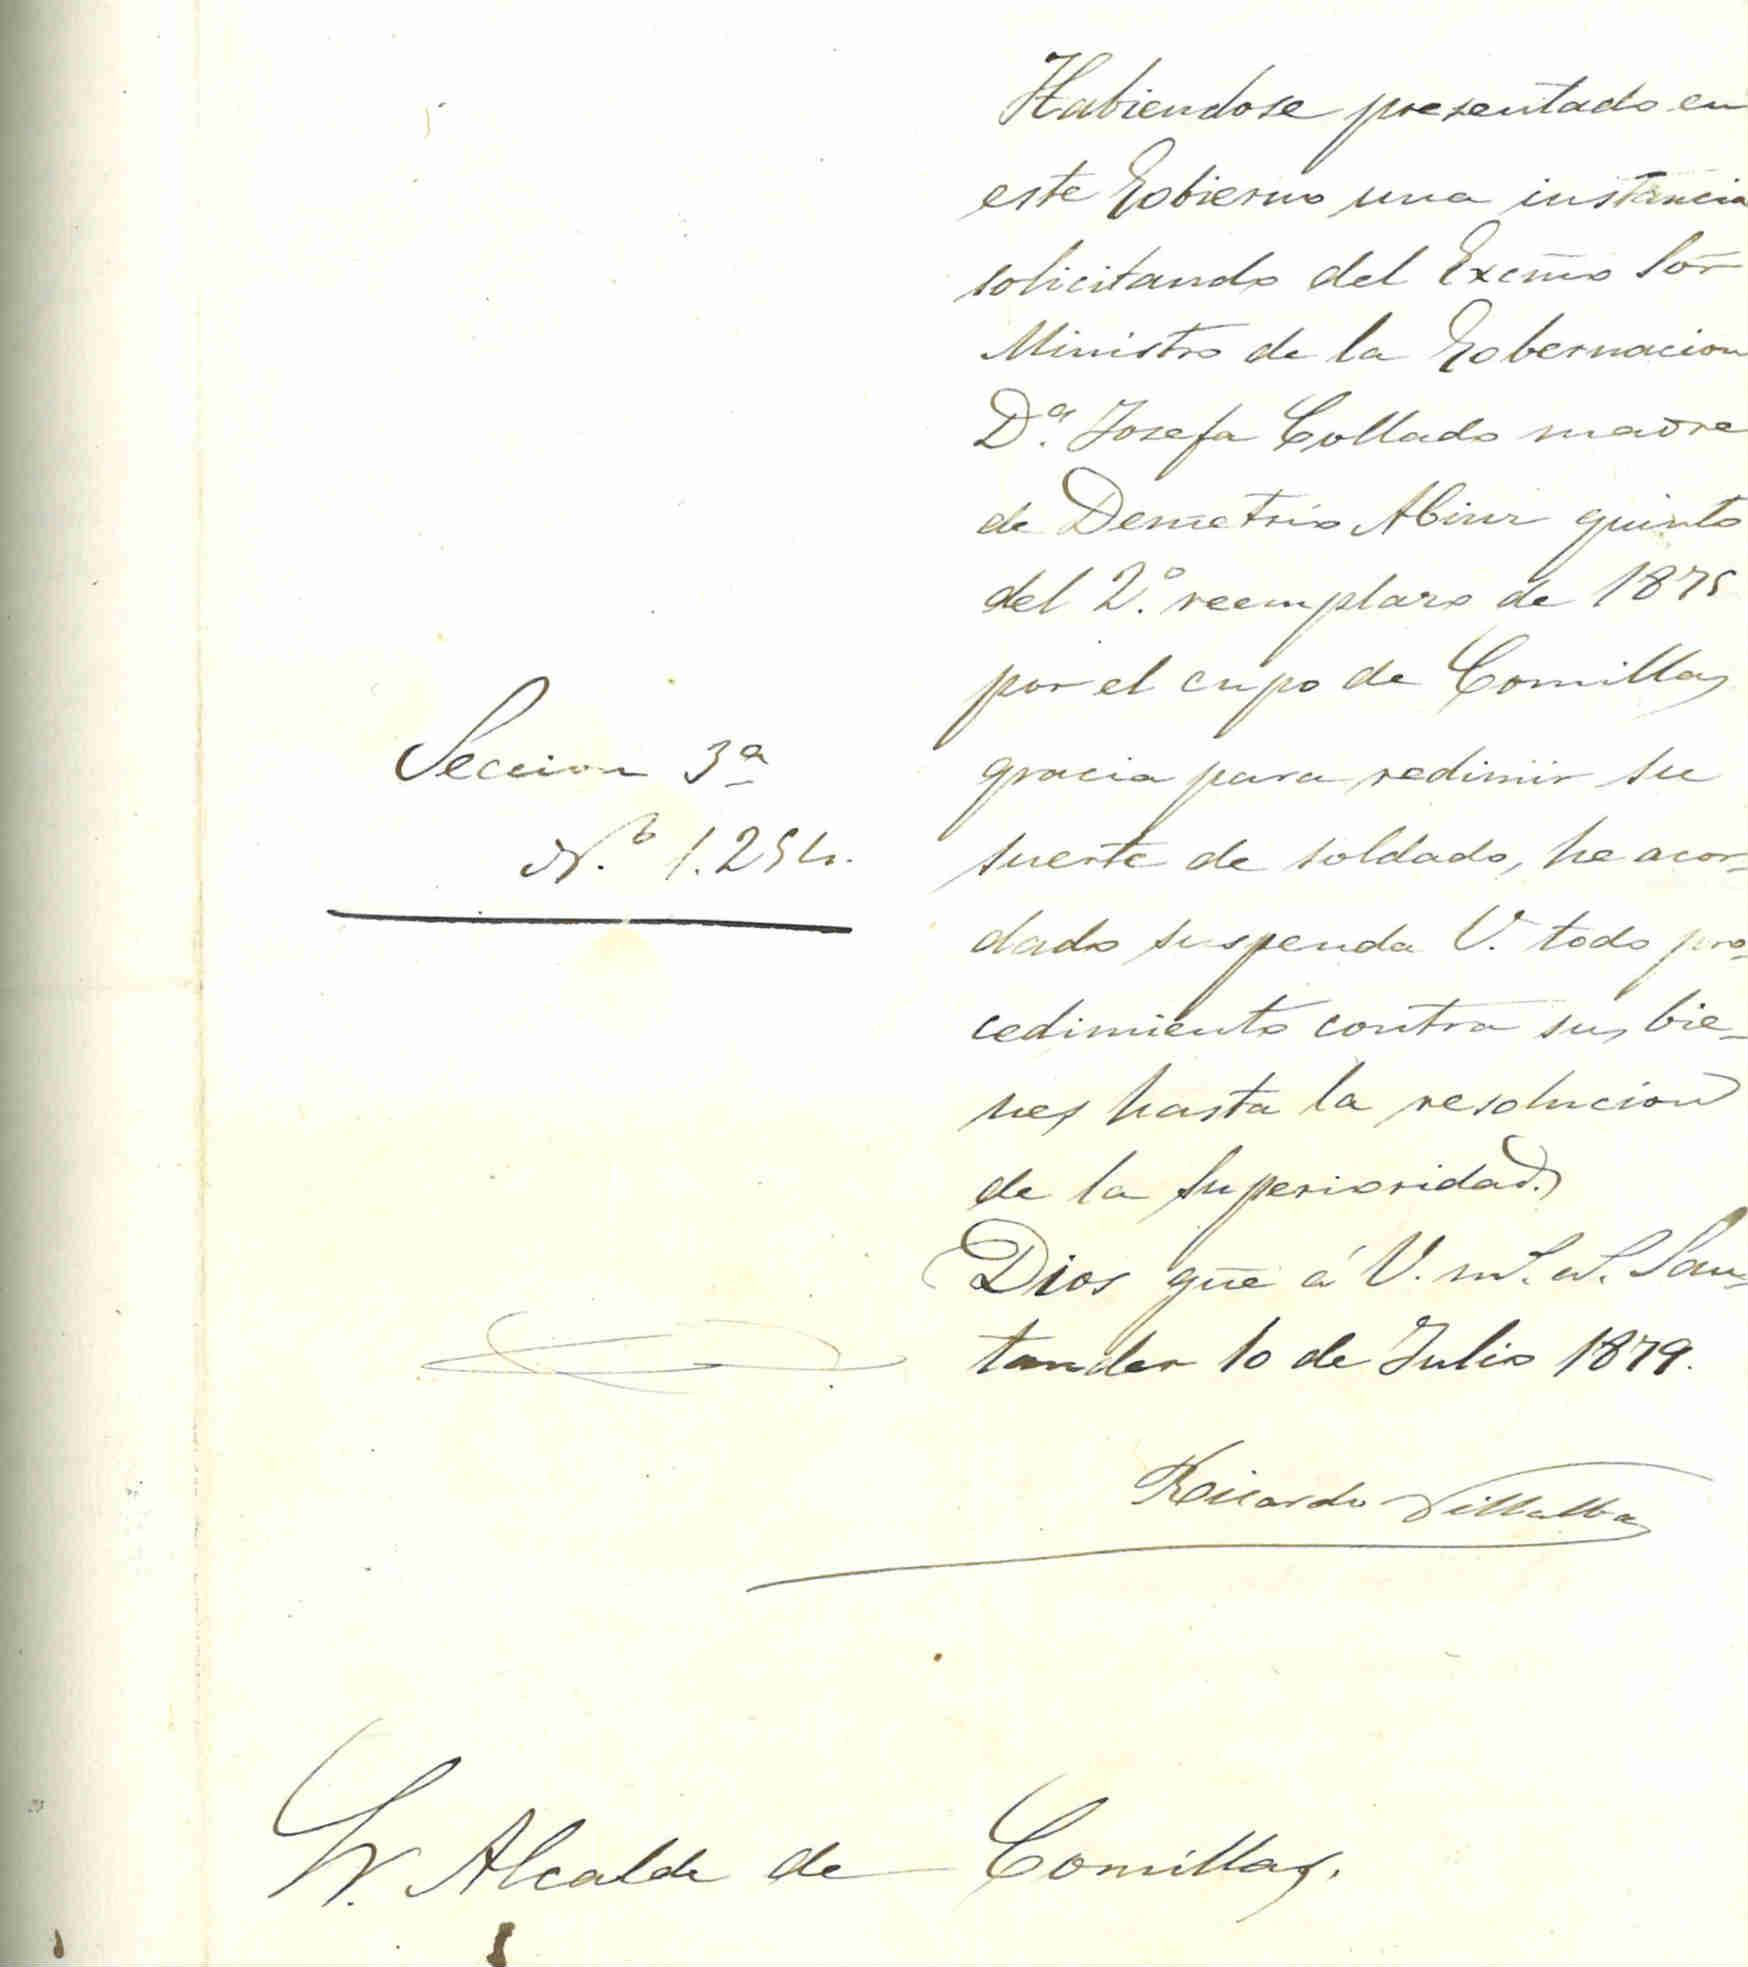 Habiendose presentado en
este Gobierno una instancia
solicitando del Excm̃o Sõr
Ministro de la Gobernacion
D.ª Josefa Collado madre
de Demetrio quinto
del 2.º reemplazo de 1875
por el cupo de Comillas
gracia para redimir su
suerte de soldado, he acor-
dado suspenda V. todo pro-
cedimiento contra sus bie-
nes hasta la resolucion
de la Superioridad.
Dios gũe á V. m.s a.s San-
tander 10 de Julio 1879.
Ricardo Villalba
Seccion 3ª
N.º 1.254.
Sr. Alcalde de Comillas.